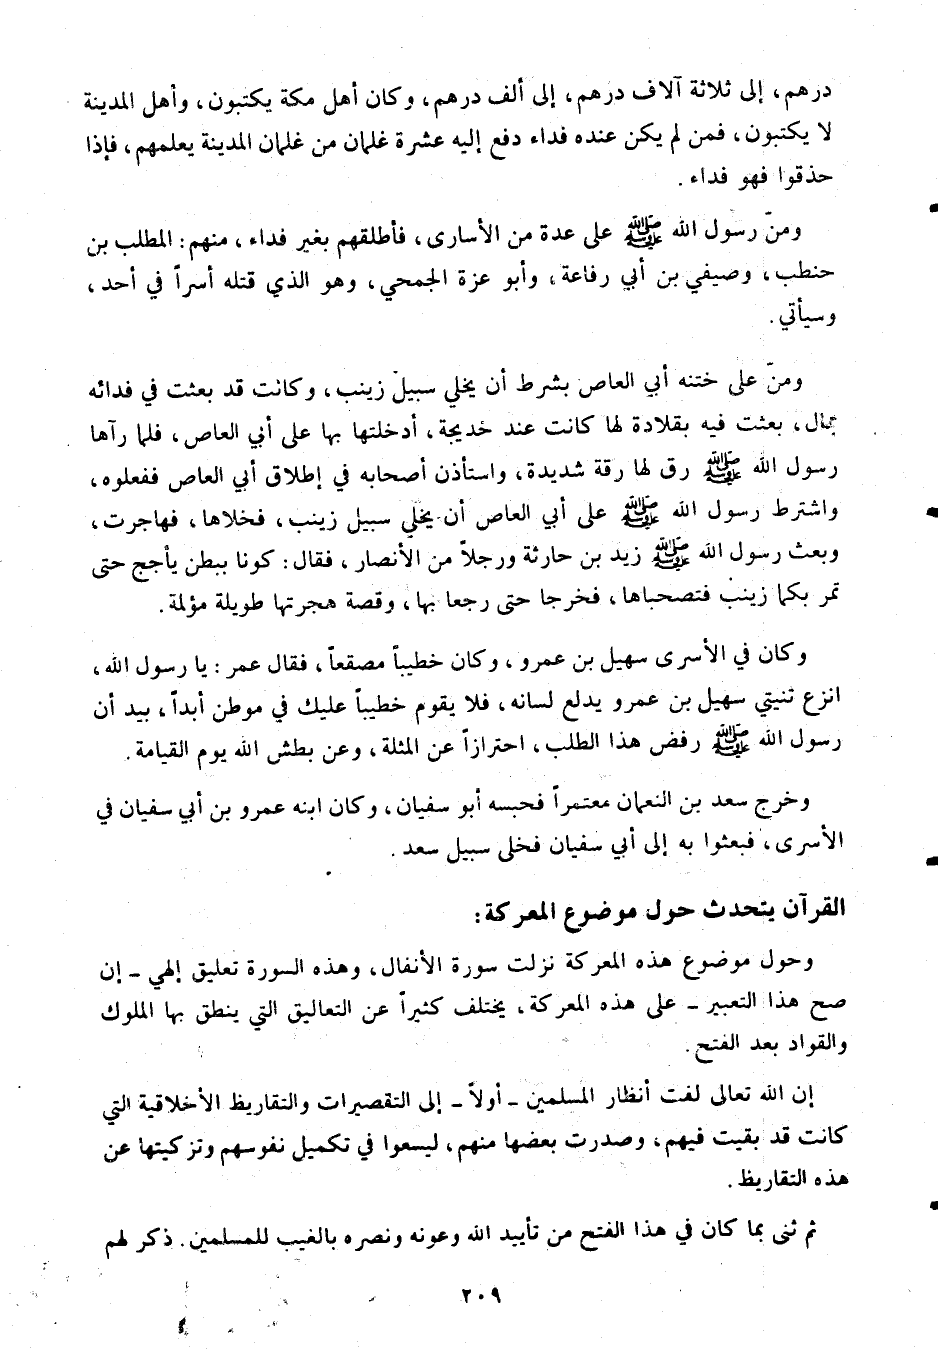 درهم، إلى ثلاثة آلاف درهم، إلى ألف درهم، وكان أهل مكة يكتبون، وأهل المدينة
لا يكتبون، فمن لم يكن عنده فداء دفع إليه عشرة غلمان من غلمان المدينة يعلمهم، فإذا
حذقوا فهو فداء.
ومنّ رسول الله ﷺ على عدة من الأسارى، فأطلقهم بغير فداء، منهم: المطلب بن
حنطب، وصيفي بن أبي رفاعة، وأبو عزة الجمحي، وهو الذي قتله أسراً في أحد،
وسيأتي.
ومنّ على ختنه أبي العاص بشرط أن يخلي سبيل زينب، وكانت قد بعثت في فدائه
بمال، بعثت فيه بقلادة لها كانت عند خديجة، أدخلتها بها على أبي العاص، فلما رآها
رسول الله ﷺ رق لها رقة شديدة، واستأذن أصحابه في إطلاق أبي العاص ففعلوه،
واشترط رسول الله ﷺ على أبي العاص أن يخلي سبيل زينب، فخلاها، فهاجرت،
وبعث رسول الله ﷺ زيد بن حارثة ورجلاً من الأنصار، فقال: كونا ببطن يأجج حتى
تمر بكما زينب فتصحباها، فخرجا حتى رجعا بها، وقصة هجرتها طويلة مؤلمة.
وكان في الأسرى سهيل بن عمرو، وكان خطيباً مصقعاً، فقال عمر: يا رسول الله،
انزع ثنيتي سهيل بن عمرو يدلع لسانه، فلا يقوم خطيباً عليك في موطن أبداً، بيد أن
رسول الله ﷺ رفض هذا الطلب، احترازاً عن المثلة، وعن بطش الله يوم القيامة.
وخرج سعد بن النعمان معتمراً فحبسه أبو سفيان، وكان ابنه عمرو بن أبي سفيان في
الأسرى، فبعثوا به إلى أبي سفيان فخلى سبيل سعد.
القرآن يتحدث حول موضوع المعركة:
وحول موضوع هذه المعركة نزلت سورة الأنفال، وهذه السورة تعليق إلهي - إن
صح هذا التعبير - على هذه المعركة، يختلف كثيراً عن التعاليق التي ينطق بها الملوك
والقواد بعد الفتح.
إن الله تعالى لفت أنظار المسلمين - أولاً - إلى التقصيرات والتقاريظ الأخلاقية التي
كانت قد بقيت فيهم، وصدرت بعضها منهم، ليسعوا في تكميل نفوسهم وتزكيتها عن
هذه التقاريظ.
ثم ثنى بما كان في هذا الفتح من تأييد الله وعونه ونصره بالغيب للمسلمين. ذكر لهم
٢٠٩